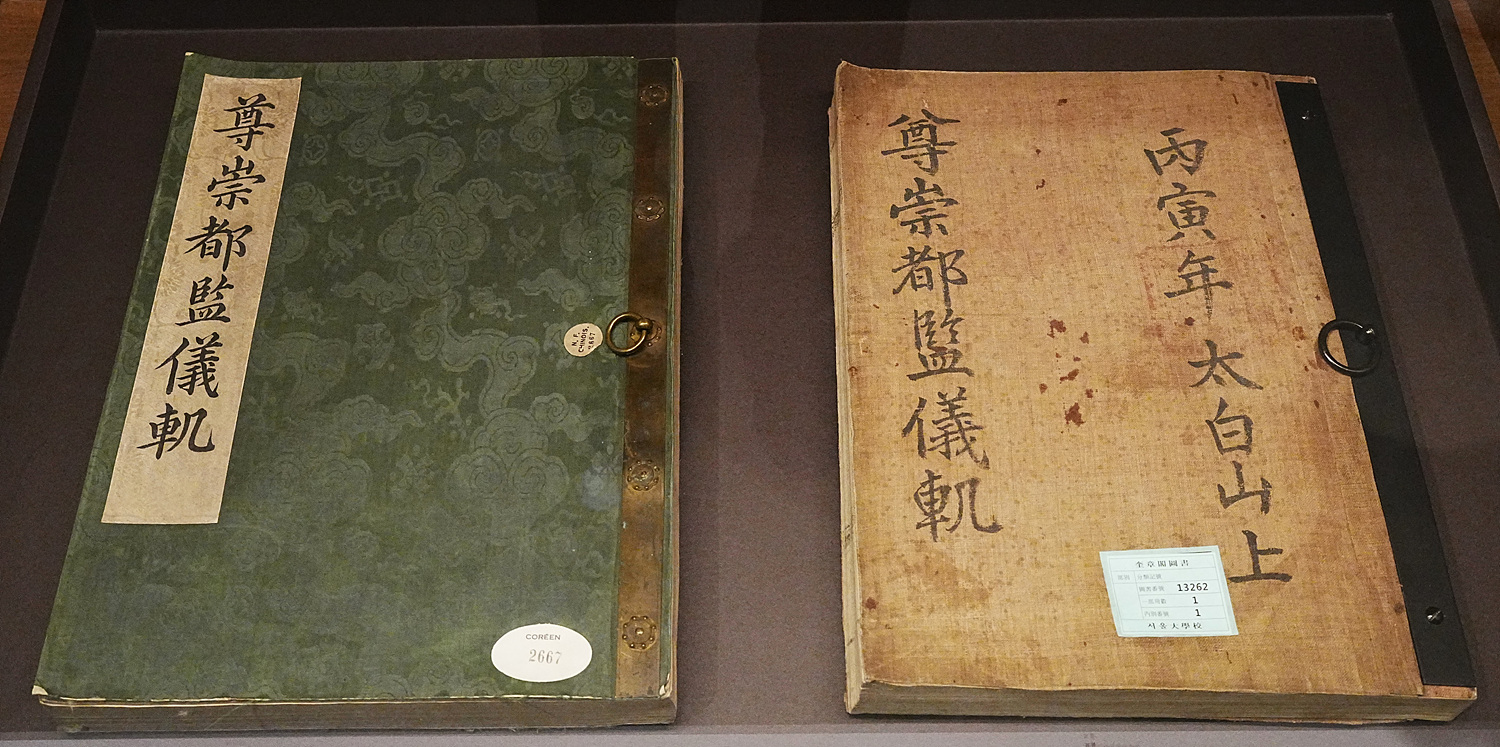 尊崇都監儀軌
N. F.
CHINOIS
2667
CORÉEN
2667
丙寅年 太白山上
尊崇都監儀軌
奎章閣圖書
分類記號
圖書番號 13262
1
1
서울大學校